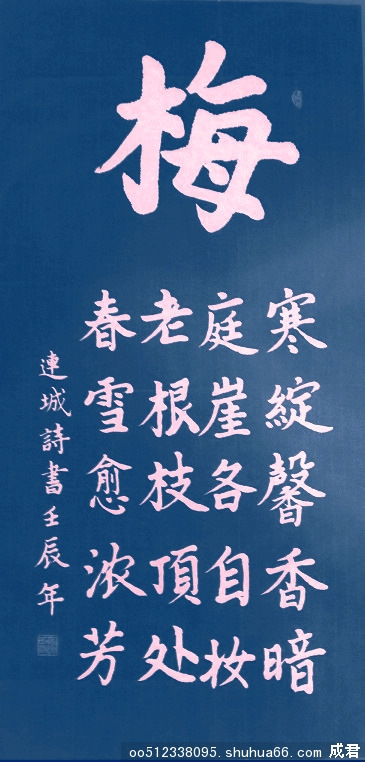 梅
寒綻馨香暗
庭崖各自妆
老根枝頂处
春雪愈浓芳
連城詩書壬辰年
oo512338095.shuhua66.com 成君